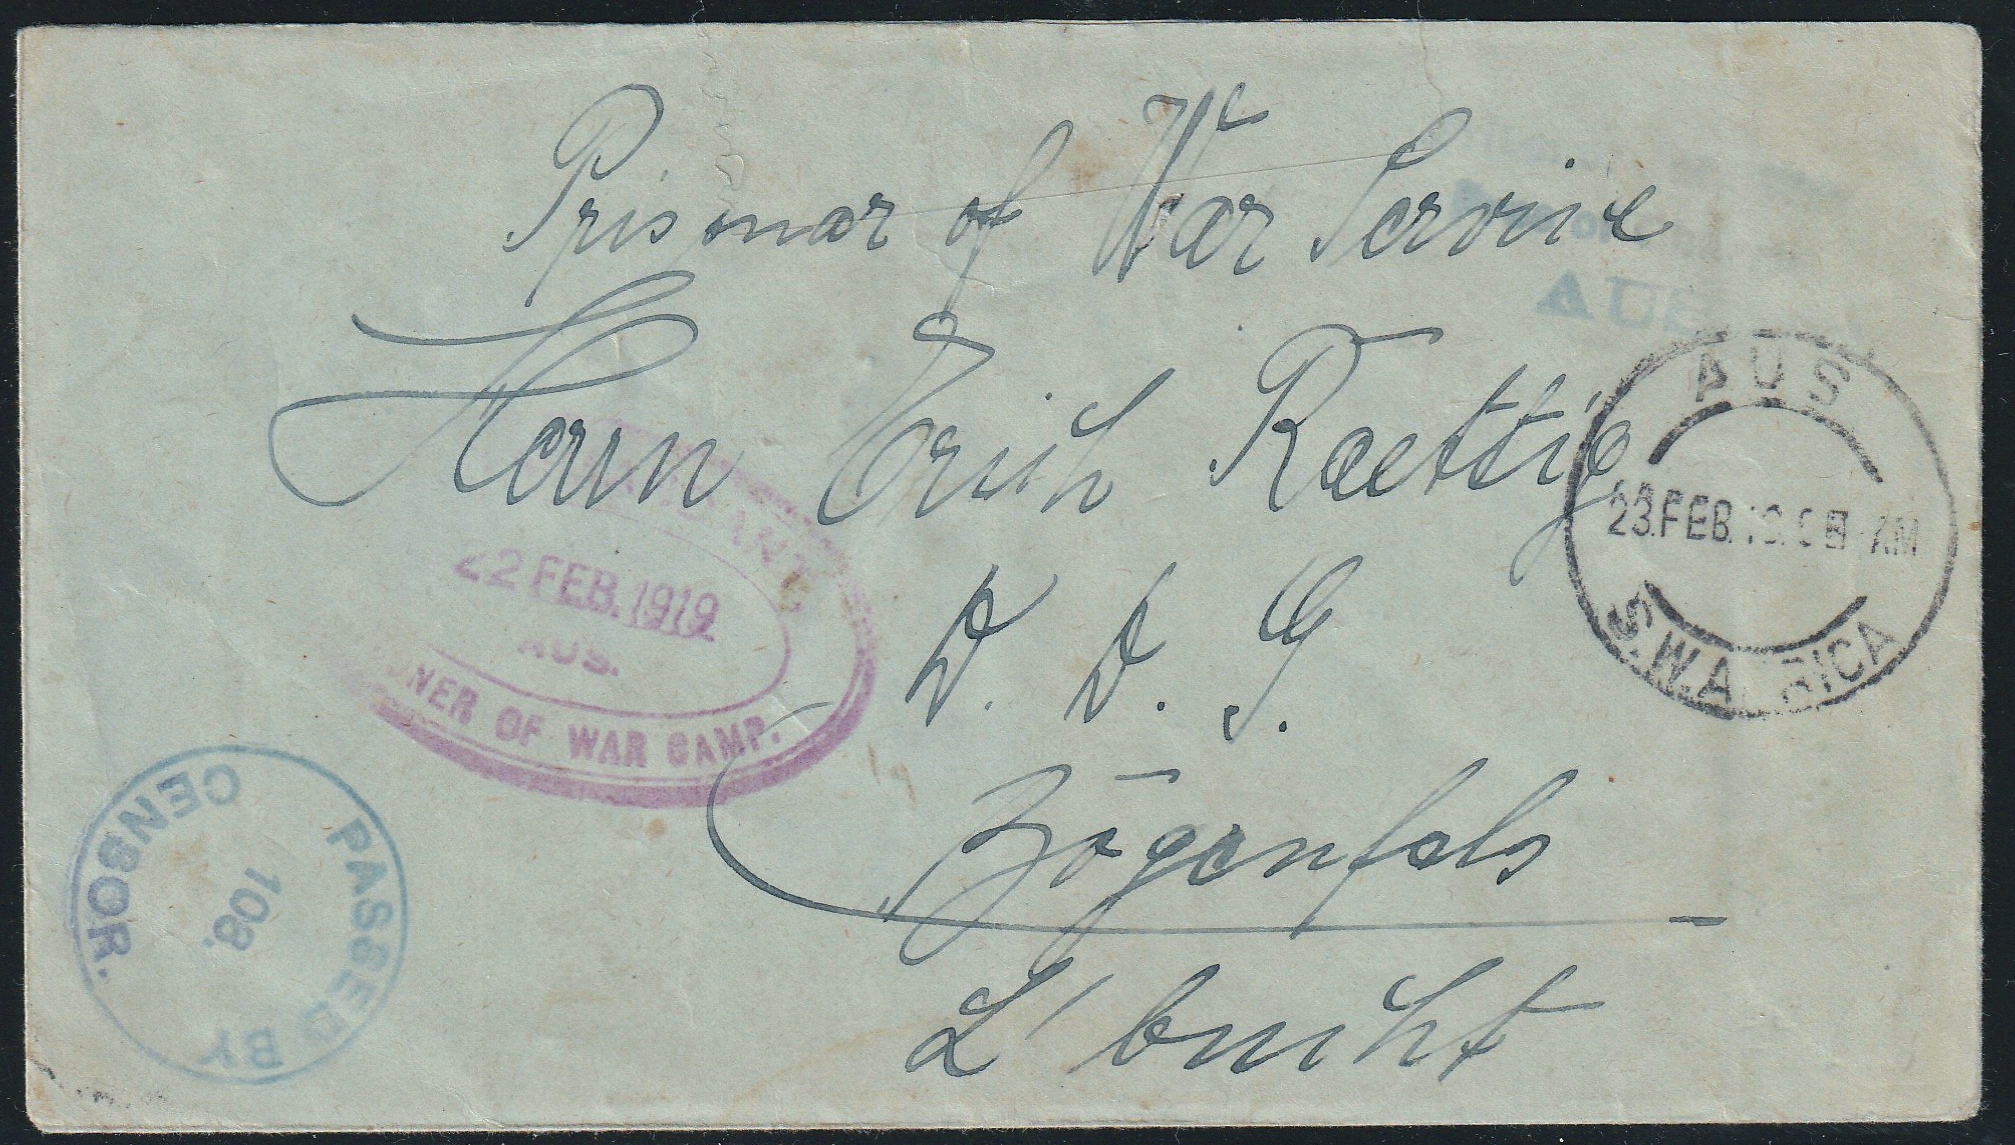 Prisonar of War Servise
Herrn Erich Raettig
D. D. G.
Bogenfels
L'bucht
AUS
23.FEB.19. AM
S.W.AFRICA
22 FEB. 1919
AUS.
OF WAR CAMP.
PASSED BY
CENSOR.
108.
AUS